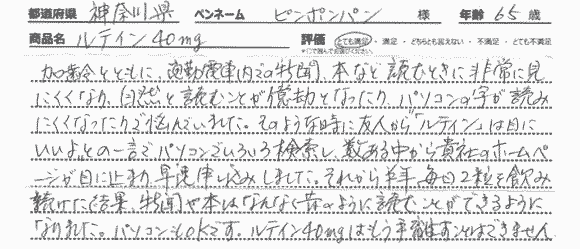 都道府県 神奈川県 ペンネーム ピンポンパン 様 年齢 65 歳
商品名 ルテイン40mg 評価 とても満足・満足・どちらとも言えない・不満足・とても不満足
加齢とともに、通勤電車内での新聞、本など読むときに非常に見
にくくなり、自然と読むことが億劫となったり、パソコンの字が読み
にくくなったりで悩んでいました。そのような時に友人から「ルテイン」は目に
いいよ”との一言でパソコンでいろいろ検索し、数ある中から貴社のホームペ
ージが目に止まり、早速申し込みしました。それから半年、毎日2粒を飲み
続けた結果、新聞や本はなんなく昔のように読むことができるように
なりました。パソコンもOKです。ルテイン40mgはもう手離すことはできません。